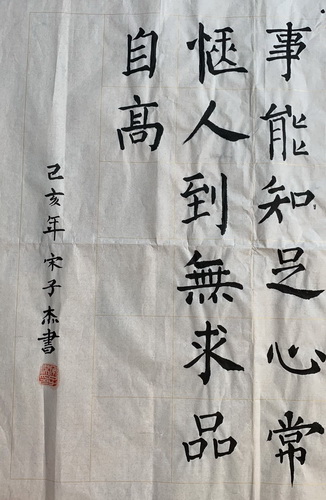 事能知足心常
愜人到無求品
自高
己亥年宋子杰書